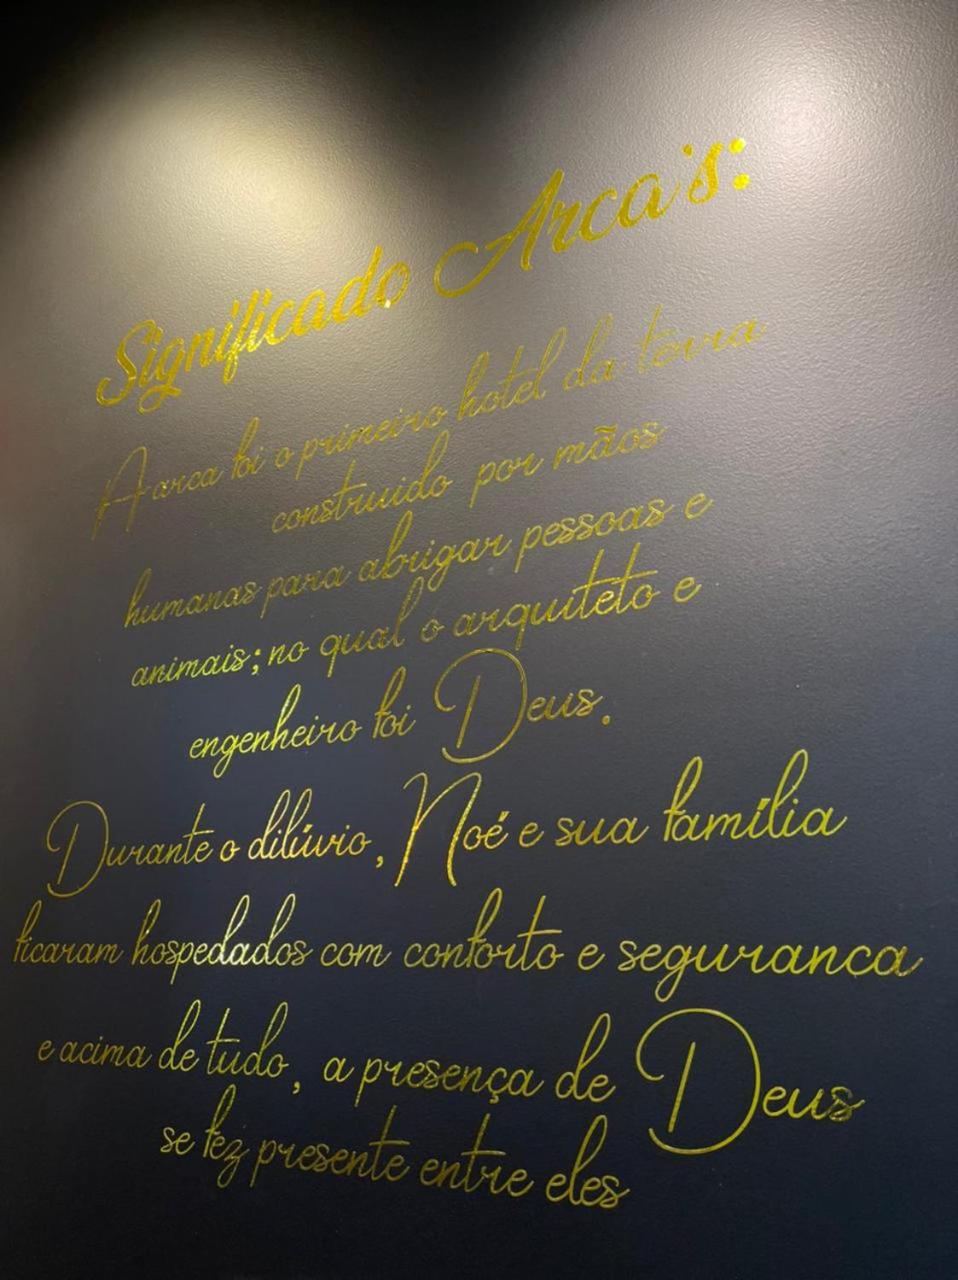 Significado Arca's:
A arca foi o primeiro hotel da terra
construido por mãos
humanas para abrigar pessoas e
animais; no qual o arquiteto e
engenheiro foi Deus.
Durante o dilúvio, Noé e sua família
ficaram hospedados com conforto e seguranca
e acima de tudo, a presença de Deus
se fez presente entre eles